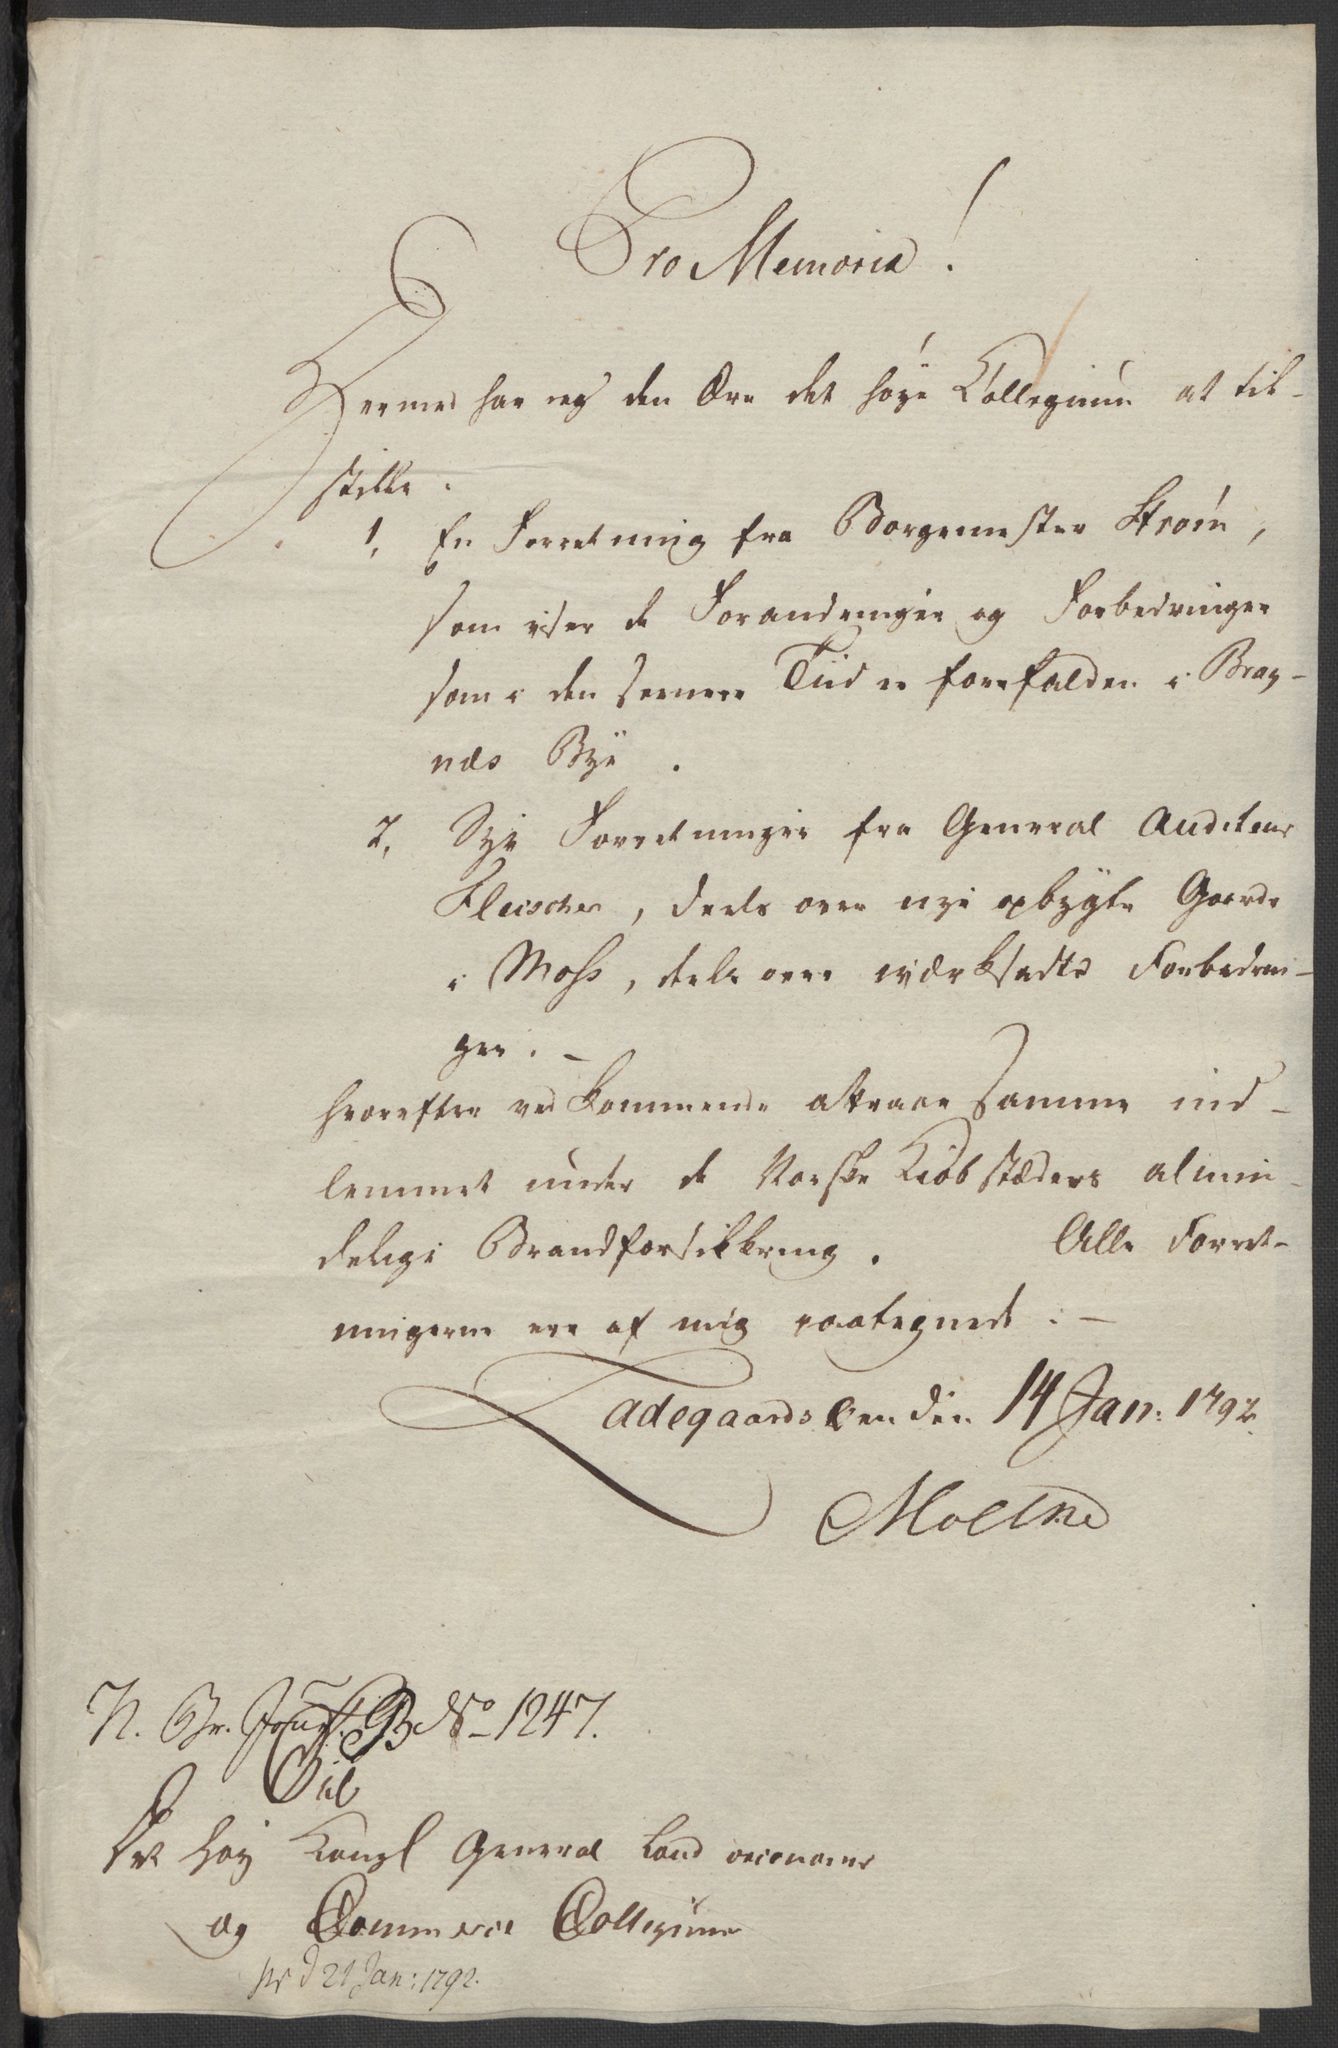 Pro Memoria!
Hermed har ieg den Ære det høye Collegium at til-
stille:
1, En Forretning fra Borgemester Strøm,
som viser de Forandringer og Forbedringer
som i den seenere Tiid er forefalden i Brag-
næs Bye.
2, Syv Forretninger fra General Auditeur
Fleischer, deels over nye opbygte Gaarde
i Moss, deels over iværksadte Forbedrin-
ger. -
hvorefter vedkommende attraaer samme ind-
lemmet under de Norske Kiøbstæders almin-
delige Brandforsikkring. Alle Forret-
ningerne ere af mig paategnede. -
Ladegaardsøen den 14 Jan: 1792.
Moltke
N. Br. Journ. B No 1247.
Til
Det høy Kongl General Land oeconomie
og Commerce Collegium
pr d 21 Jan: 1792.